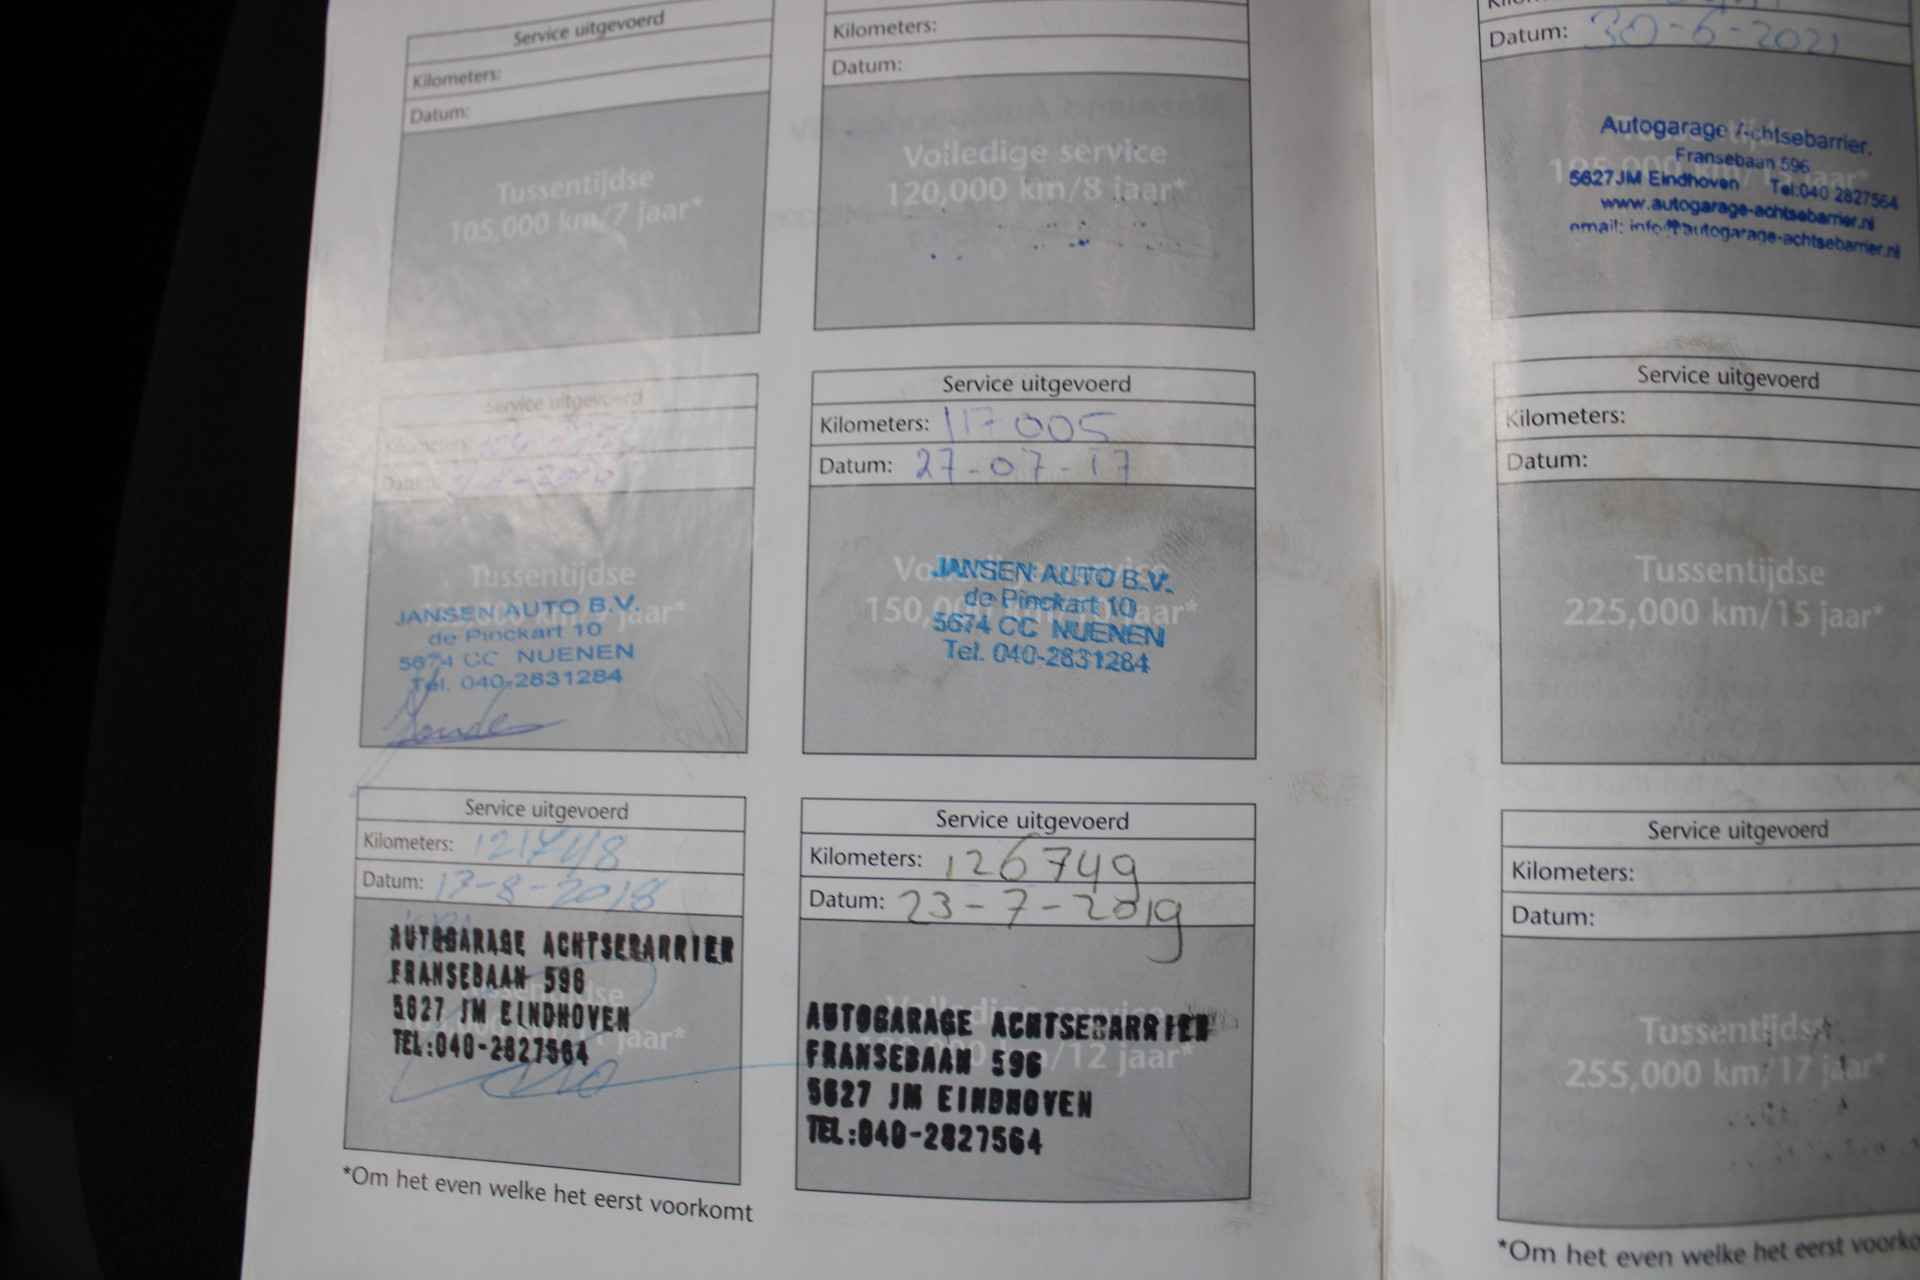 Service uitgevoerd
Kilometers:
Datum:
Tussentijdse
105,000 km/7 jaar*
Kilometers:
Datum:
Volledige service
120,000 km/8 jaar*
Service uitgevoerd
Kilometers:
Datum:
Tussentijdse
jaar*
JANSEN AUTO B.V.
de Pinckart 10
5674 CC NUENEN
Tel. 040-2831284
Service uitgevoerd
Kilometers: 117005
Datum: 27-07-17
150,000 jaar*
JANSEN AUTO B.V.
de Pinckart 10
5674 CC NUENEN
Tel. 040-2831284
Service uitgevoerd
Kilometers: 121748
Datum: 17-8-2018
jaar*
AUTOGARAGE ACHTSEBARRIER
FRANSEBAAN 596
5627 JM EINDHOVEN
TEL:040-2827564
Service uitgevoerd
Kilometers: 126749
Datum: 23-7-2019
Volledige service
km/12 jaar*
AUTOGARAGE ACHTSEBARRIER
FRANSEBAAN 596
5627 JM EINDHOVEN
TEL:040-2827564
*Om het even welke het eerst voorkomt
Datum: 30-6-2021
jaar*
Autogarage Achtsebarrier.
Fransebaan 596
5627JM Eindhoven Tel:040 2827564
www.autogarage-achtsebarrier.nl
email: info@autogarage-achtsebarrier.nl
Service uitgevoerd
Kilometers:
Datum:
Tussentijdse
225,000 km/15 jaar*
Service uitgevoerd
Kilometers:
Datum:
Tussentijdse
255,000 km/17 jaar*
*Om het even welke het eerst